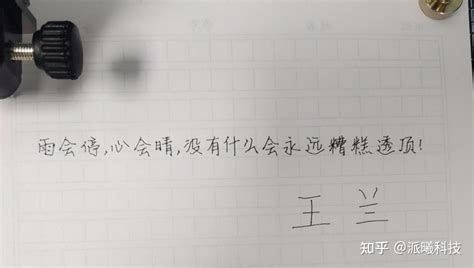 雨会停,心会晴,没有什么会永远糟糕透顶!
王兰
知乎 @派曦科技